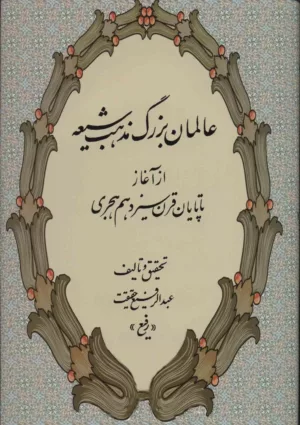 عالمان بزرگ مذهب شیعه
از آغاز
تا پایان قرن سیزدهم هجری
تحقیق و تألیف
عبدالرفیع حقیقت
«رفیع»